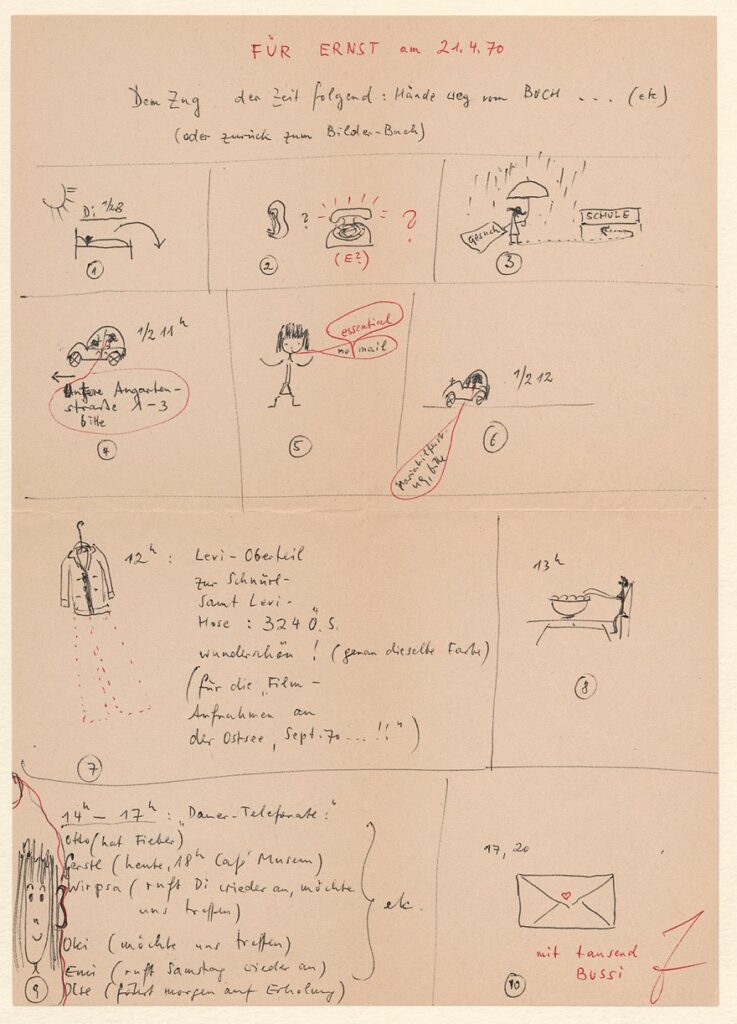 FÜR ERNST am 21.4.70
Dem Zug der Zeit folgend: Hände weg vom BUCH ... (etc)
(oder zurück zum Bilder-Buch)
Di 1/2 8
1
? ?
(E?)
2
Gesuch
SCHULE
3
1/2 11h
Untere Augarten-
straße 1-3
bitte
4
essential
no mail
5
1/2 12
bitte
6
12h:
Levi-Oberteil
zur Schnürl-
Samt Levi-
Hose: 324 Ö.S.
wunderschön! (genau dieselbe Farbe)
(für die "Film-
Aufnahmen an
der Ostsee, Sept. 70 ... !!")
7
13h
8
14h - 17h: "Dauer-Telefonate:"
Otto (hat Fieber)
Gerstl (heute, 18h Café Museum)
Wirpsa (ruft Di wieder an, möchte
uns treffen)
Oki (möchte uns treffen)
Emi (ruft Samstag wieder an)
Ilse (fährt morgen auf Erholung)
etc.
9
17, 20
mit tausend
BUSSI
J
10